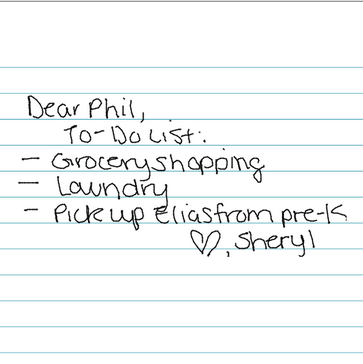 Dear Phil,
To-Do List:
- Grocery shopping
- Laundry
- Pick up Elias from pre-K
♡, Sheryl